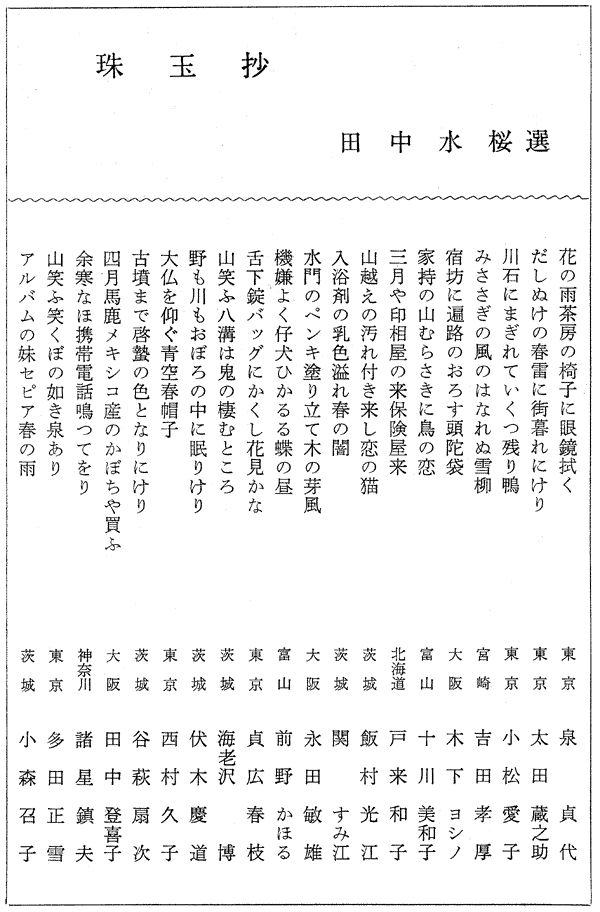 珠玉抄
田中水桜選
花の雨茶房の椅子に眼鏡拭く 東京 泉貞代
だしぬけの春雷に街暮れにけり 東京 太田蔵之助
川石にまぎれていくつ残り鴨 東京 小松愛子
みささぎの風のはなれぬ雪柳 宮崎 吉田孝厚
宿坊に遍路のおろす頭陀袋 大阪 木下ヨシノ
家持の山むらさきに鳥の恋 富山 十川美和子
三月や印相屋の来保険屋来 北海道 戸来和子
山越えの汚れ付き来し恋の猫 茨城 飯村光江
入浴剤の乳色溢れ春の闇 茨城 関すみ江
水門のペンキ塗り立て木の芽風 大阪 永田敏雄
機嫌よく仔犬ひかるる蝶の昼 富山 前野かほる
舌下錠バッグにかくし花見かな 東京 貞広春枝
山笑ふ八溝は鬼の棲むところ 茨城 海老沢博
野も川もおぼろの中に眠りけり 茨城 伏木慶道
大仏を仰ぐ青空春帽子 東京 西村久子
古墳まで啓蟄の色となりにけり 茨城 谷萩扇次
四月馬鹿メキシコ産のかぼちや買ふ 大阪 田中登喜子
余寒なほ携帯電話鳴つてをり 神奈川 諸星鎮夫
山笑ふ笑くぼの如き泉あり 東京 多田正雪
アルバムの妹セピア春の雨 茨城 小森召子